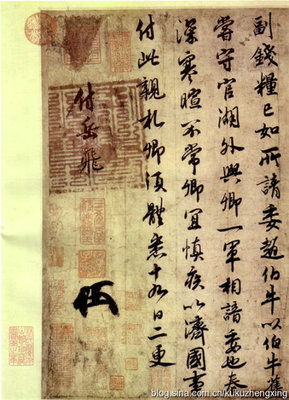 副錢糧已如所請委趙伯牛以伯牛舊
嘗守官湖外與卿一軍相諳委也春
深寒暄不常卿宜慎疾以濟國事
付此親札卿須體悉十九日二更
付岳飛
blog.sina.com.cn/kukuzhengxing